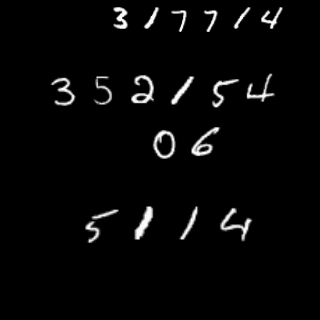 3 1 7 7 1 4
3 5 2 1 5 4
0 6
5 1 1 4